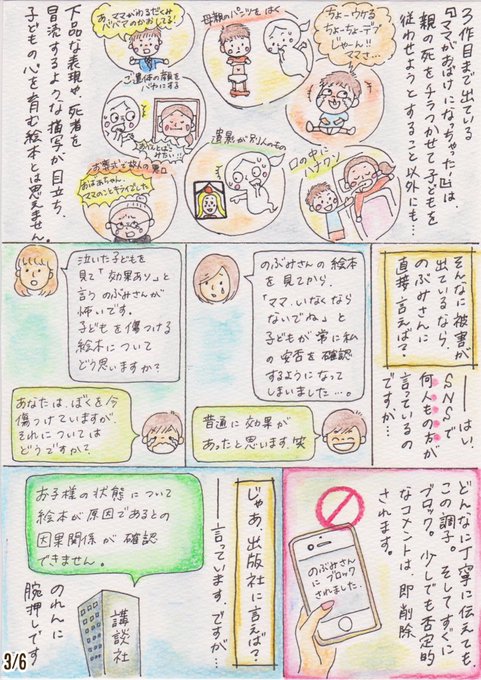 3作目まで出ている
「ママがおばけになっちゃった!」は
親の死をチラつかせて子どもを
従わせようとすること以外にも…
ちょーウケる
ちょーちょーデブ
じゃーん!!
ママさ…
口の中に
ハナクソ
母親のパンツを はく
遺影が別人のもの
あ、ママがわるだくみ
ババアのかおしてる!
ご遺体の顔を
バカにする
お葬式で故人の悪口
おばあちゃん、
ママのことキライでした
下品な表現や、死者を
冒涜するような描写が目立ち、
子どもの心を育む絵本とは思えません。
そんなに被害が
出ているなら、
のぶみさんに
直接言えば?
はい、
SNSで
何人もの方が
言っているの
ですが…
のぶみさんの絵本
を見てから、
「ママ、いなくなら
ないでね」と
子どもが常に私
の安否を確認
するようになって
しまいました…。
普通に効果が
あったと思います。笑
泣いた子どもを
見て「効果あり」と
言うのぶみさんが
怖いです。
子どもを傷つける
絵本について
どう思いますか?
あなたは、ぼくを今
傷つけていますが、
それについては
どうですか?
どんなに丁寧に伝えても、
この調子。そしてすぐに
ブロック。少しでも否定的
なコメントは、即削除
されます。
のぶみさん
にブロック
されました.
じゃあ、出版社に言えば?
言っています。ですが…
お子様の状態について
絵本が原因であるとの
因果関係が確認
できません。
講談社
のれんに
腕押しです
3/6